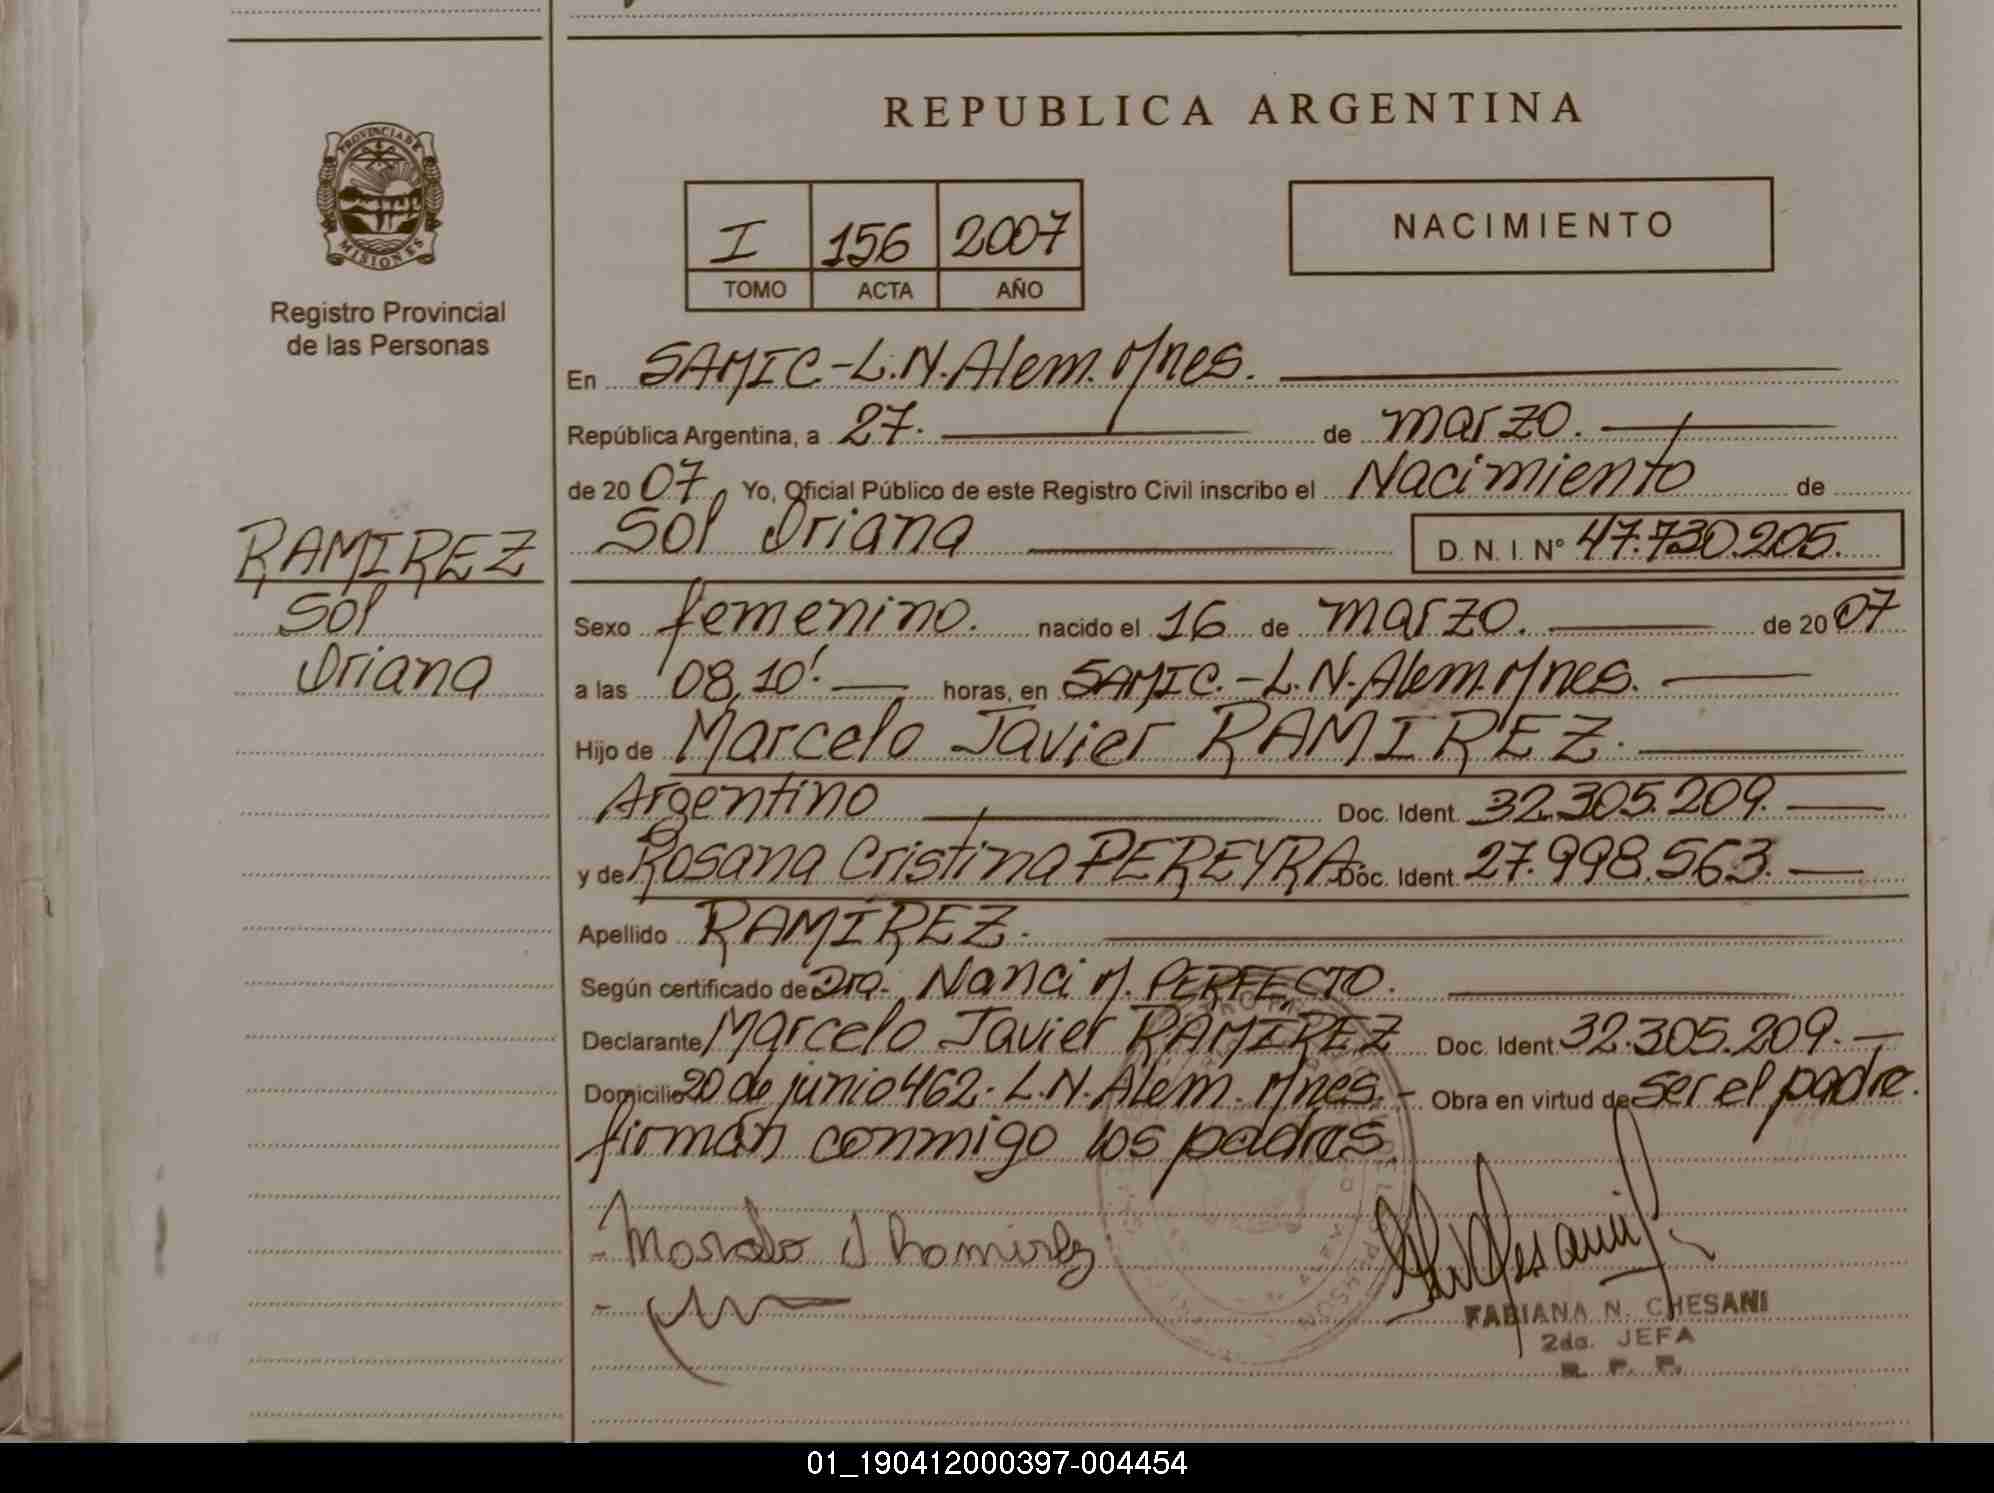 REPUBLICA ARGENTINA
PROVINCIA DE
MISIONES
Registro Provincial
de las Personas
I 156 2007
TOMO ACTA AÑO
NACIMIENTO
En SAMIC-L.N.Alem. Mnes.
República Argentina, a 27. de marzo.
de 2007 Yo, Oficial Público de este Registro Civil inscribo el Nacimiento de
Sol Oriana D. N. I. Nº 47.730.205.
RAMIREZ
Sol
Oriana
Sexo femenino. nacido el 16 de marzo. de 2007
a las 08,10' horas, en SAMIC.-L.N.Alem. Mnes.
Hijo de Marcelo Javier RAMIREZ.
Argentino Doc. Ident. 32.305.209.
y de Rosana Cristina PEREYRA Doc. Ident. 27.998.563.
Apellido RAMIREZ.
Según certificado de Dra. Nanci M. PERFECTO.
Declarante Marcelo Javier RAMIREZ Doc. Ident. 32.305.209.-
Domicilio 20 de junio 462. L.N. Alem. Mnes.- Obra en virtud de ser el padre.
firman conmigo los padres.
FABIANA N. CHESANI
2da. JEFA
R. P. P.
01_190412000397-004454